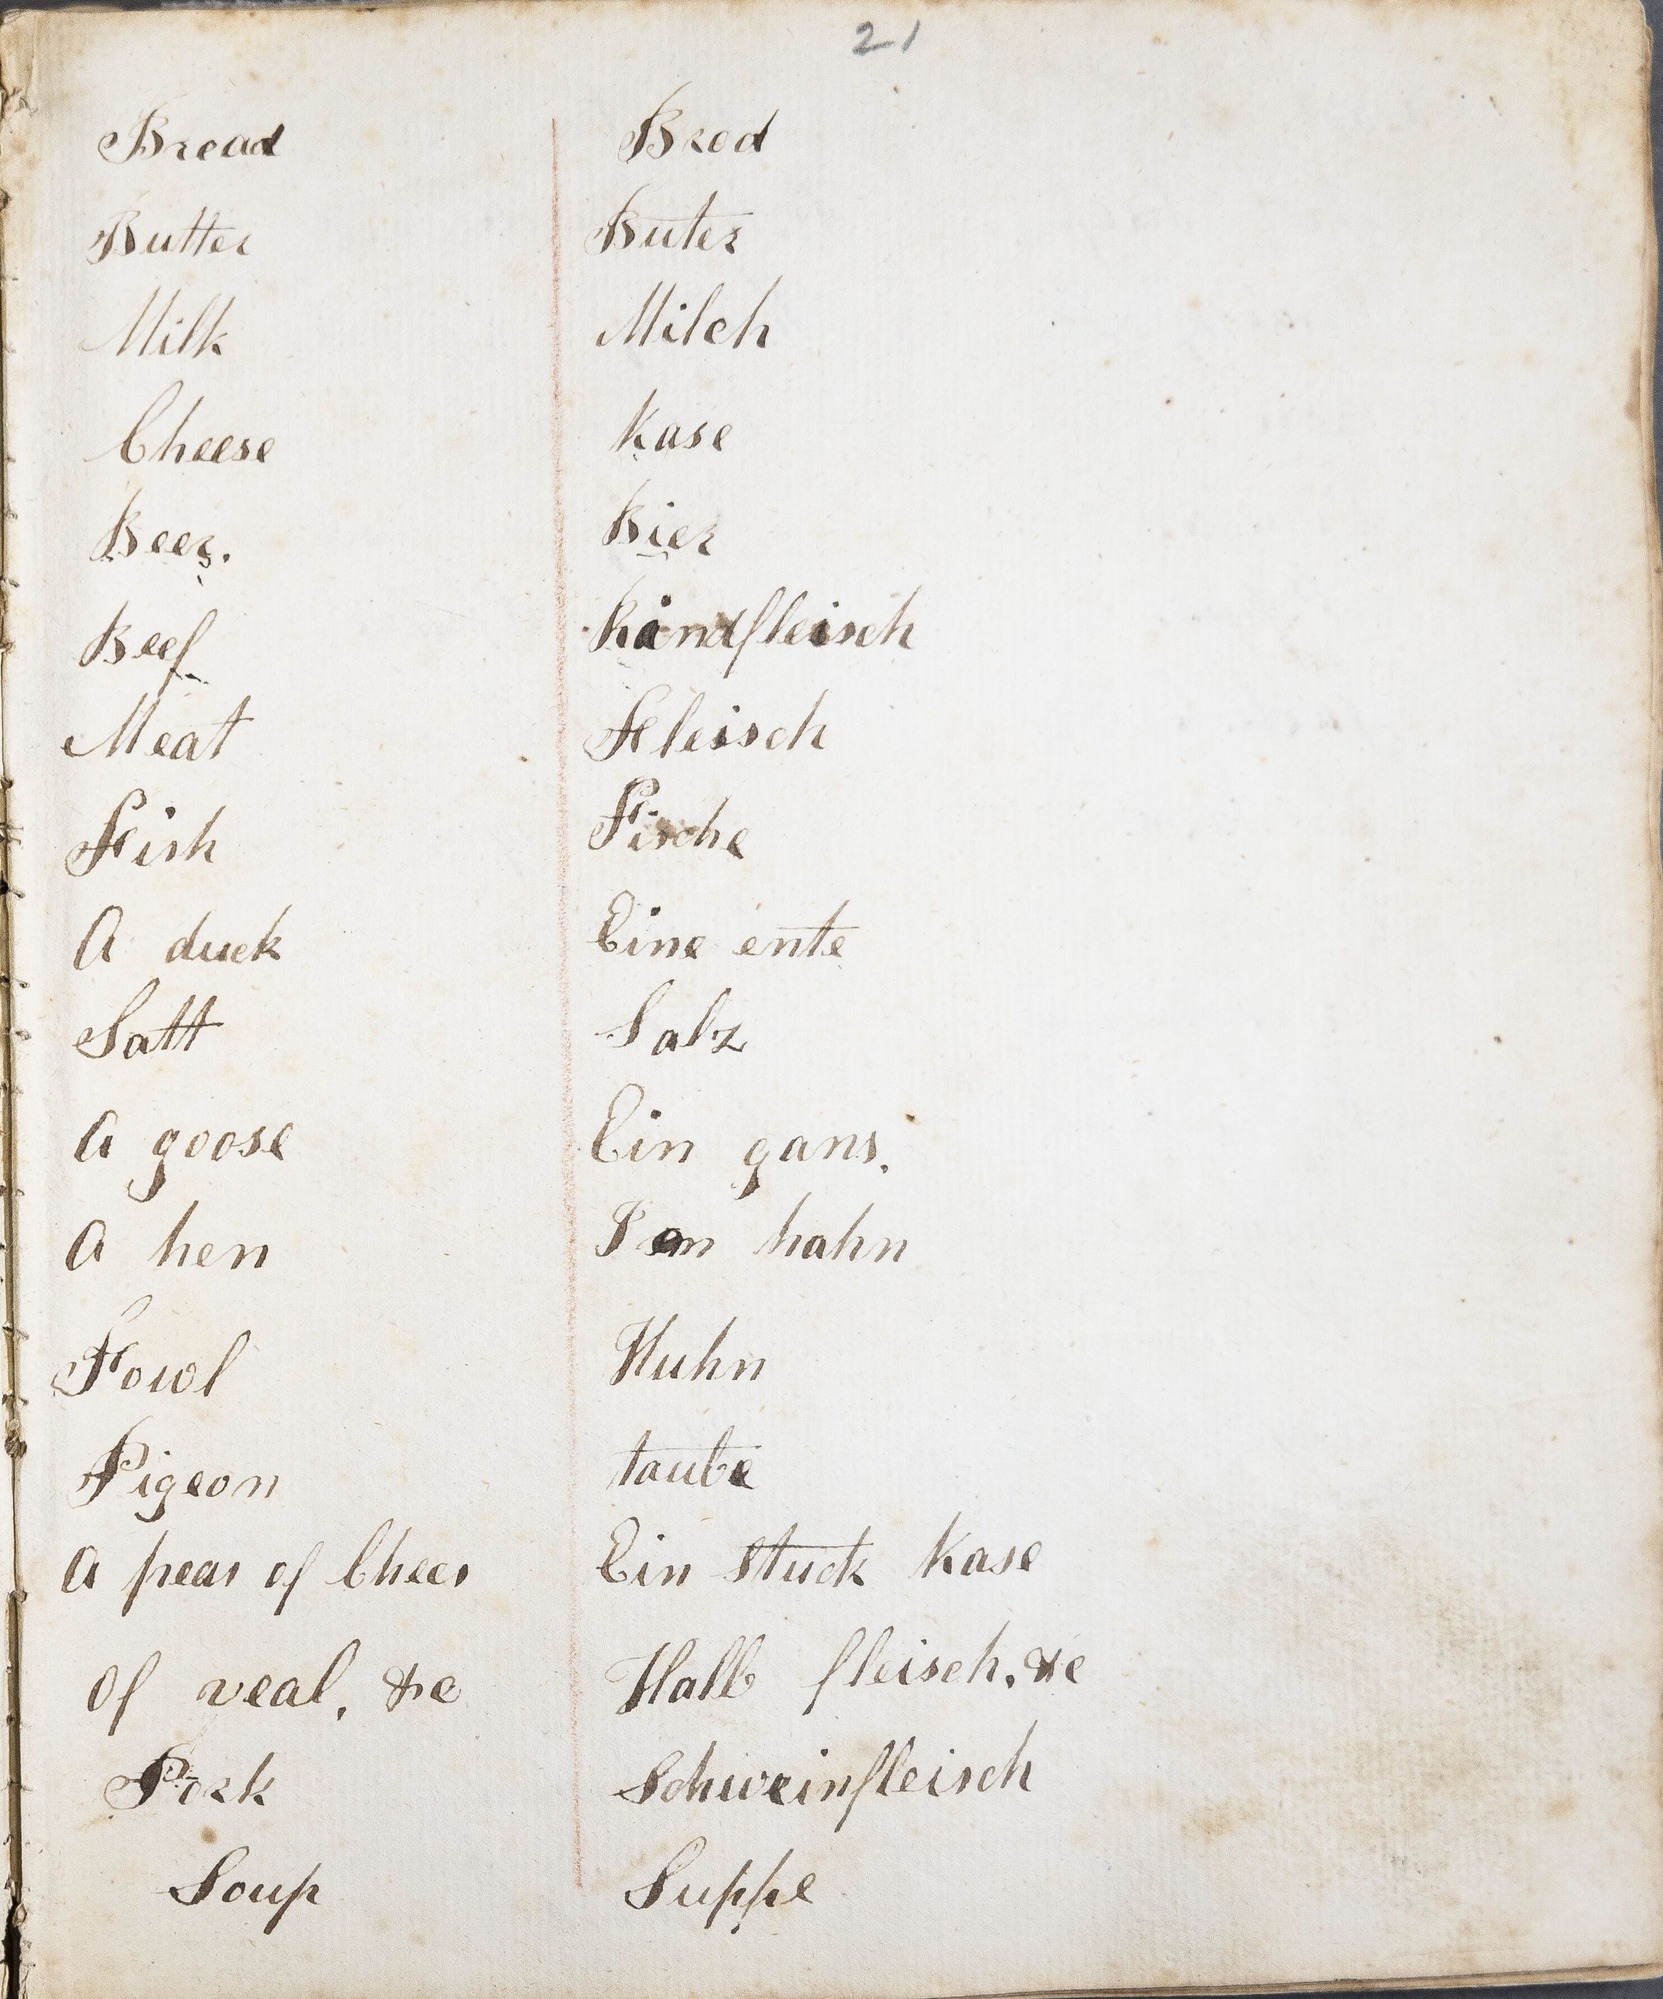 21
Bread Brod
Butter Buter
Milk Milch
Cheese Kase
Beer. Bier
Beef Randfleisch
Meat Fleisch
Fish Fische
A duck Eine ente
Satt Salz
A goose Ein gans.
A hen hahn
Fowl Huhn
Pigeon taube
A peas of Chees Ein Stuck Kase
Of veal, &c Halb fleisch, &c
Pork Schweinfleisch
Soup Suppe